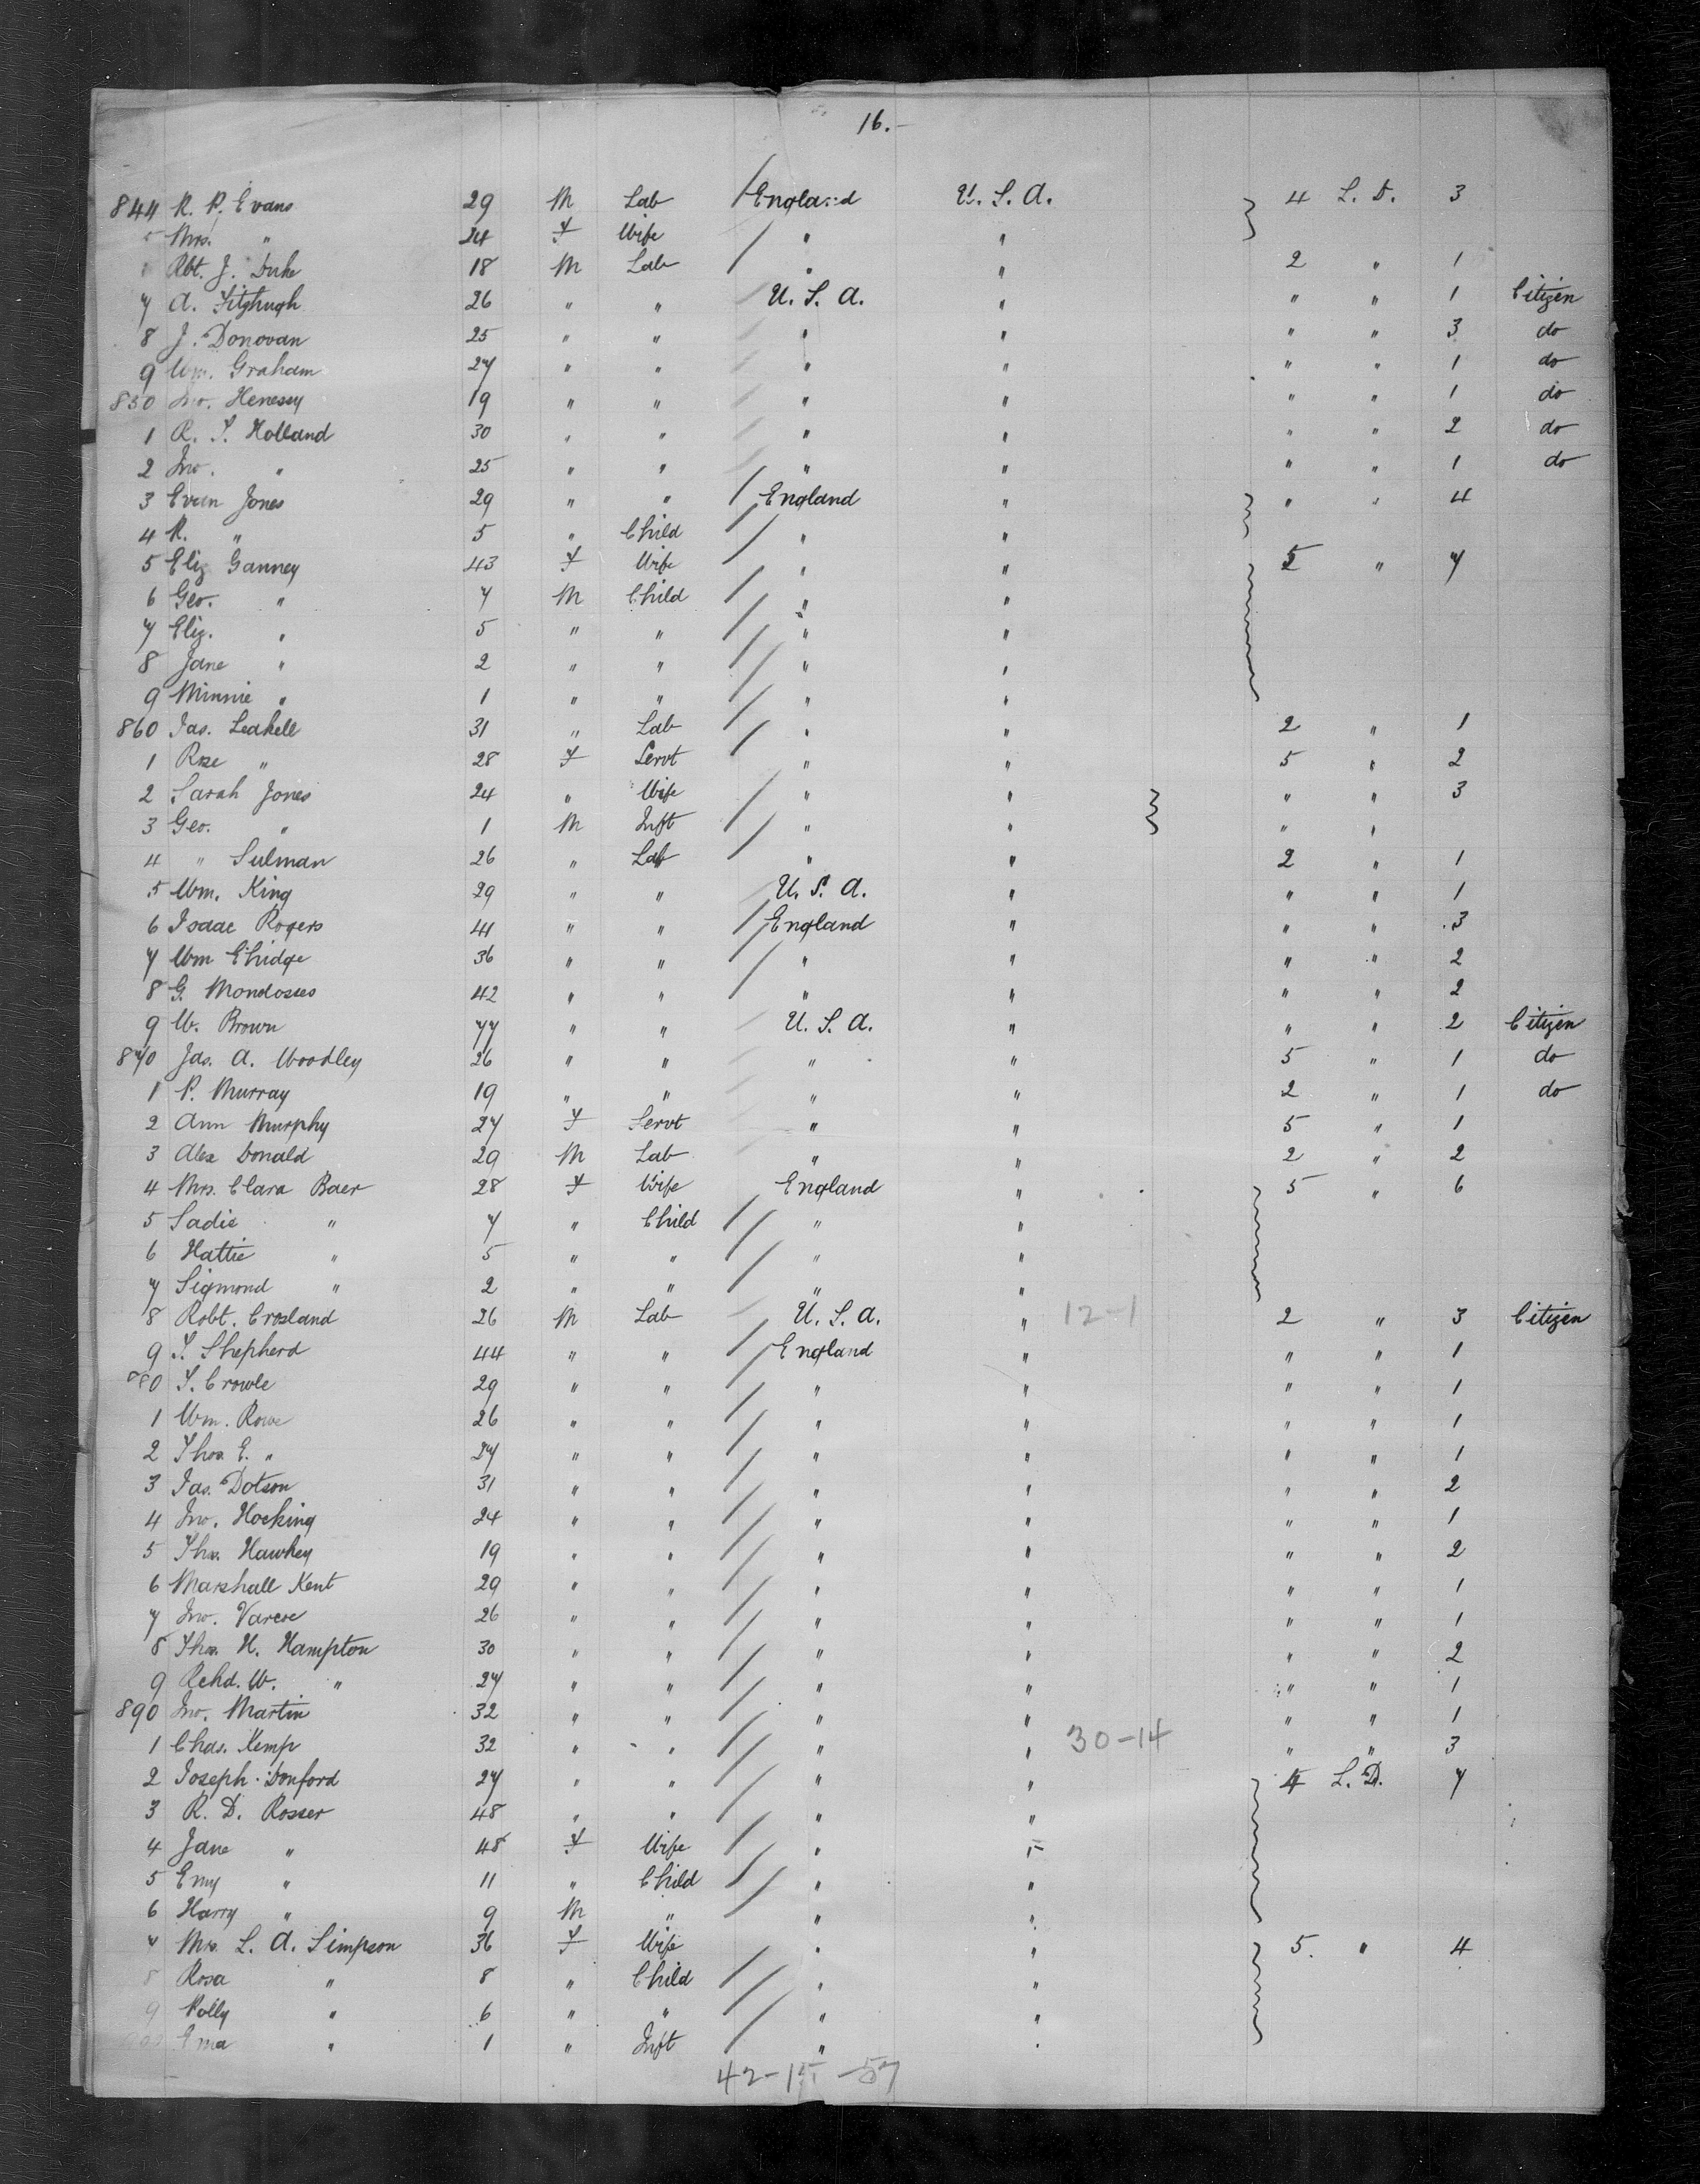 16.-
844 R. P. Evans 29 M Lab England U. S. A. 4 L. D. 3
5 Mrs. " 24 F Wife " "
Rbt. J. Duke 18 M Lab " " 2 " 1
7 A. Fitzhugh 26 " " U. S. A. " " " 1 Citizen
8 J. Donovan 25 " " " " " " 3 do
9 Wm. Graham 27 " " " " " " 1 do
850 Jno. Henesey 19 " " " " " " 1 do
1 R. S. Holland 30 " " " " " " 2 do
2 Jno. " 25 " " " " " " 1 do
3 Evan Jones 29 " " England " " " 4
4 R. " 5 " Child " "
5 Eliz Ganney 43 F Wife " " 5 " 7
6 Geo. " 7 M Child " "
7 Eliz. " 5 " " " "
8 Jane " 2 " " " "
9 Minnie " 1 " " " "
860 Jas. Leahell 31 " Lab " " 2 " 1
1 Rse " 28 F Servt " " 5 " 2
2 Sarah Jones 24 " Wife " " " " 3
3 Geo. " 1 M Inft " " " "
4 " Sulman 26 " Lab " " 2 " 1
5 Wm. King 29 " " U. S. A. " " " 1
6 Isaac Rogers 41 " " England " " " 3
7 Wm 36 " " " " " " 2
8 G. 42 " " " " " " 2
9 W. Brown 77 " " U. S. A. " " " 2 Citizen
870 Jas. A. Woodley 26 " " " " 5 " 1 do
1 P. Murray 19 " " " " 2 " 1 do
2 Ann Murphy 27 F Servt " " 5 " 1
3 Alex Donald 29 M Lab " " 2 " 2
4 Mrs. Clara Baer 28 F Wife England " 5 " 6
5 Sadie " 7 " Child " "
6 Hattie " 5 " " " "
7 Sigmond " 2 " " " "
8 Robt. Crosland 26 M Lab U. S. A. " 12-1 2 " 3 Citizen
9 S. Shepherd 44 " " England " " " 1
880 S. Crowle 29 " " " " " " 1
1 Wm. Rowe 26 " " " " " " 1
2 Thos E. " 27 " " " " " " 1
3 Jas. Dotson 31 " " " " " " 2
4 Jno. Hocking 24 " " " " " " 1
5 Thos. Hawkey 19 " " " " " " 2
6 Marshall Kent 29 " " " " " " 1
7 Jno. Varcoe 26 " " " " " " 1
8 Thos. H. Hampton 30 " " " " " " 2
9 Rchd. W. " 27 " " " " " " 1
890 Jno. Martin 32 " " " " " " 1
1 Chas. Kemp 32 " " " " 30-14 " " 3
2 Joseph Donford 27 " " " " 4 L. D. 7
3 R. D. Rosser 48 " " " "
4 Jane " 48 F Wife " "
5 Emy " 11 " Child " "
6 Harry " 9 M " " "
7 Mrs. L. A. Simpson 36 F Wife " " 5. " 4
8 Rosa " 8 " Child " "
9 Polly " 6 " " " "
Ema " 1 " Inft " "
42-15-57